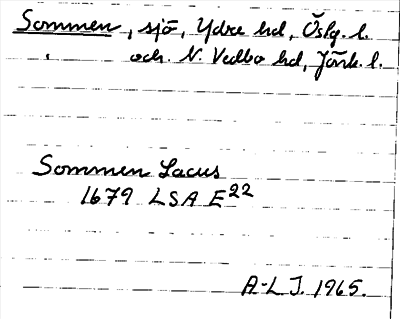 Sommen, sjö, Ydre hd, Östg. l.
och N. Vedbo hd, Jönk. l.
Sommen Lacus
1679 LSA E22
A-L J. 1965.